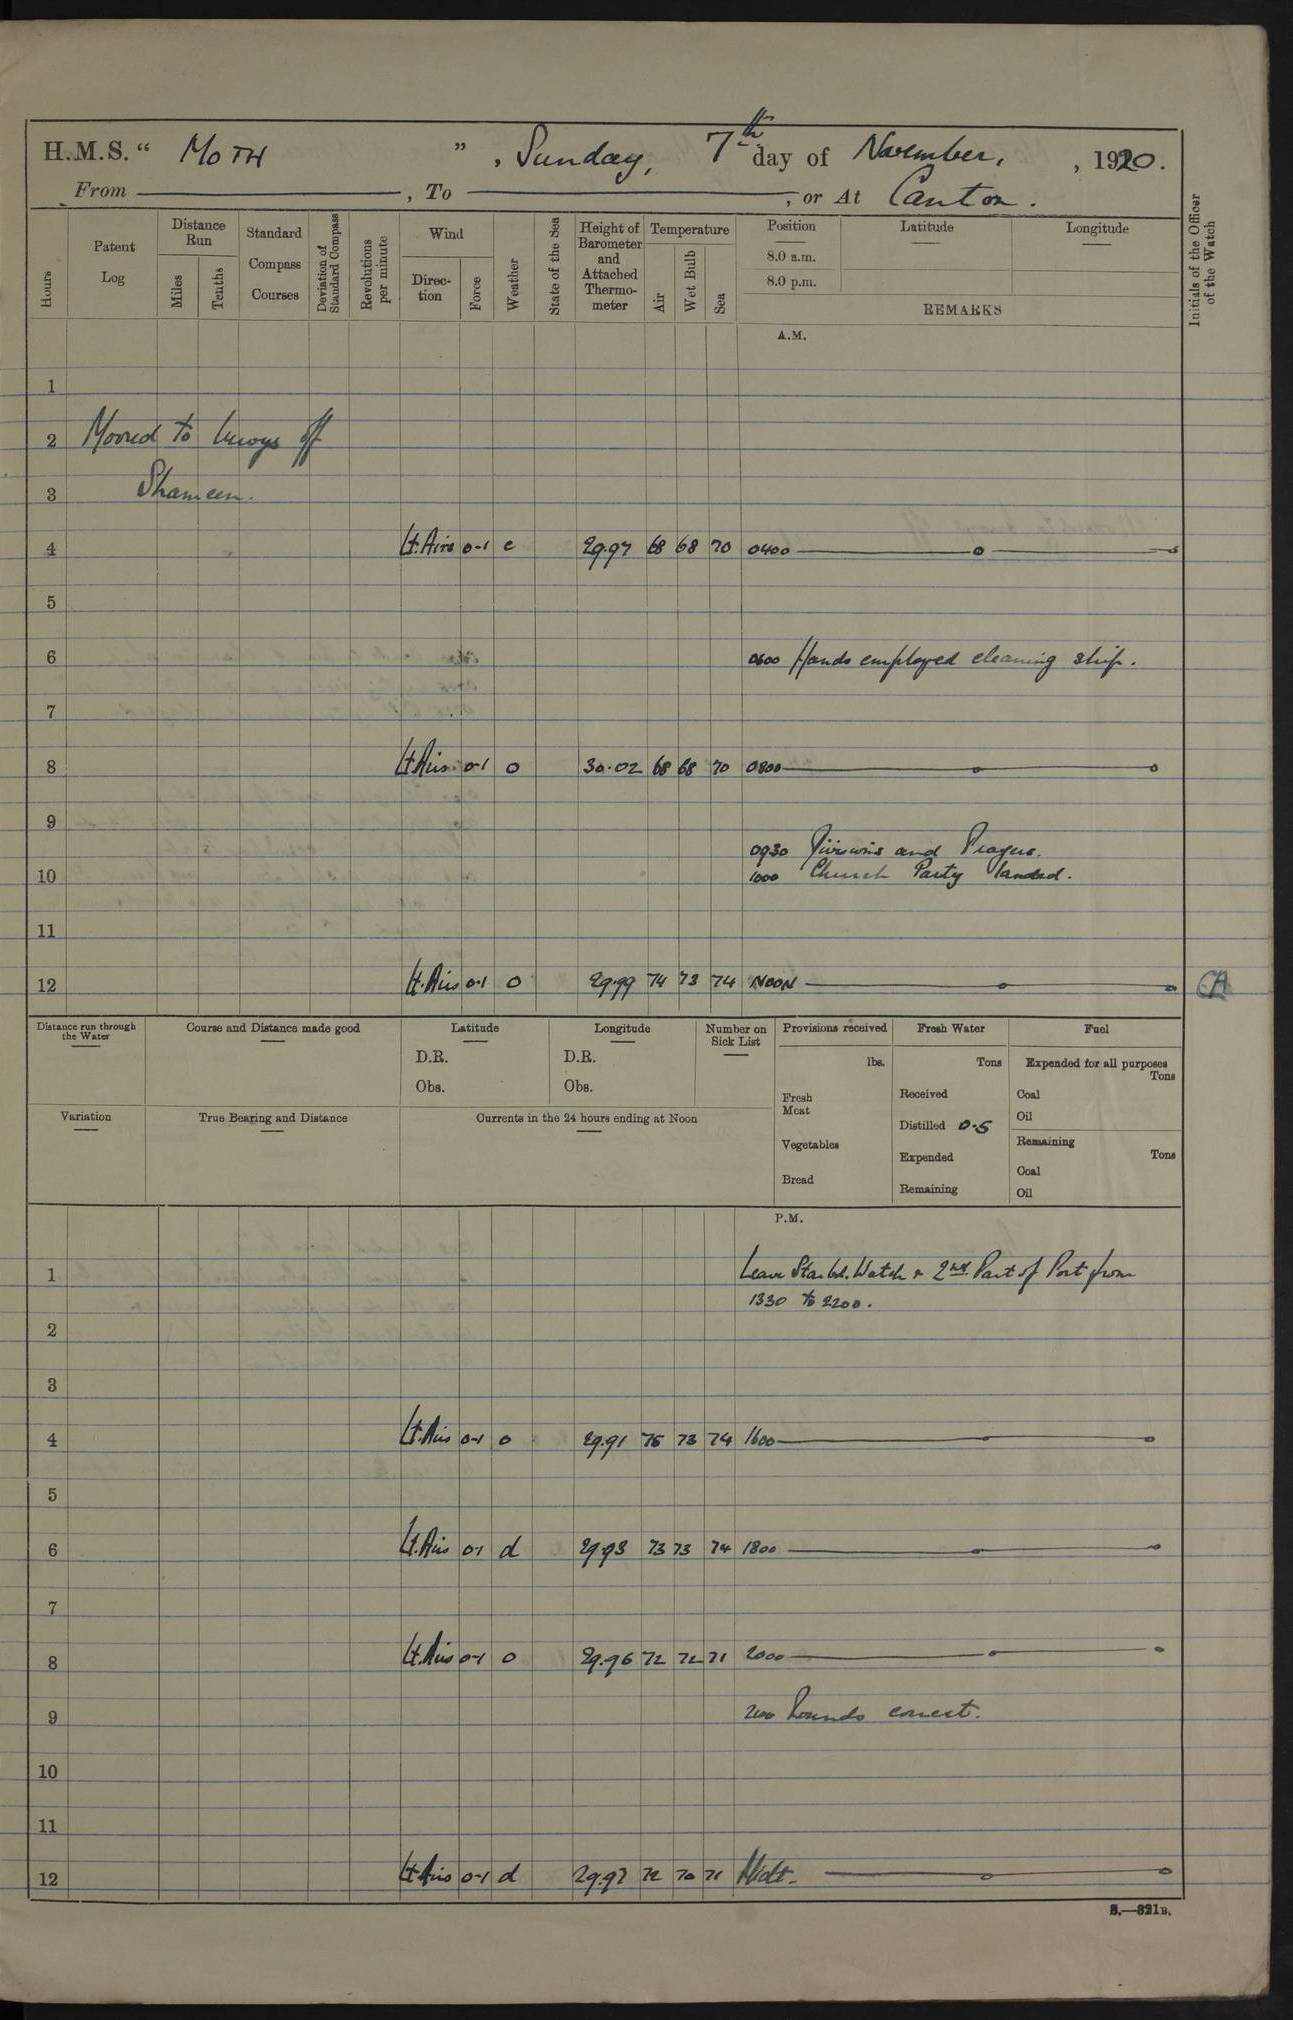 H.M.S. “ MOTH ” , Sunday, 7th day of November, , 1920.
From , To , or At Canton.
Hours
Patent Log
Distance Run
Miles
Tenths
Standard Compass Courses
Deviation of Standard Compass
Revolutions per minute
Wind
Direction
Force
Weather
State of the Sea
Height of Barometer and Attached Thermometer
Temperature
Air
Wet Bulb
Sea
Position
8.0 a.m.
8.0 p.m.
Latitude
Longitude
REMARKS
Initials of the Officer of the Watch
A.M.
1
2 Moored to buoys off
3 Shameen.
4 Lt. Airs 0-1 c 29.97 68 68 70 0400
5
6 0600 Hands employed cleaning ship.
7
8 Lt Airs 0-1 o 30.02 68 68 70 0800
9
0930 Divisions and Prayers.
10 1000 Church Party landed.
11
12 Lt. Airs 0-1 o 29.99 74 73 74 NOON CA
Distance run through the Water
Course and Distance made good
Latitude
D.R.
Obs.
Longitude
D.R.
Obs.
Number on Sick List
Provisions received
lbs.
Fresh Meat
Vegetables
Bread
Fresh Water
Tons
Received
Distilled 0.5
Expended
Remaining
Fuel
Expended for all purposes
Tons
Coal
Oil
Remaining
Tons
Coal
Oil
Variation
True Bearing and Distance
Currents in the 24 hours ending at Noon
P.M.
1 Leave Starbd. Watch & 2nd Part of Port from
1330 to 2200.
2
3
4 Lt. Airs 0-1 o 29.91 75 73 74 1600
5
6 Lt. Airs 0-1 d 29.93 73 73 74 1800
7
8 Lt. Airs 0-1 o 29.96 72 72 71 2000
9 2100 Rounds correct.
10
11
12 Lt Airs 0-1 d 29.97 72 70 71 Midt.
S.—321B.